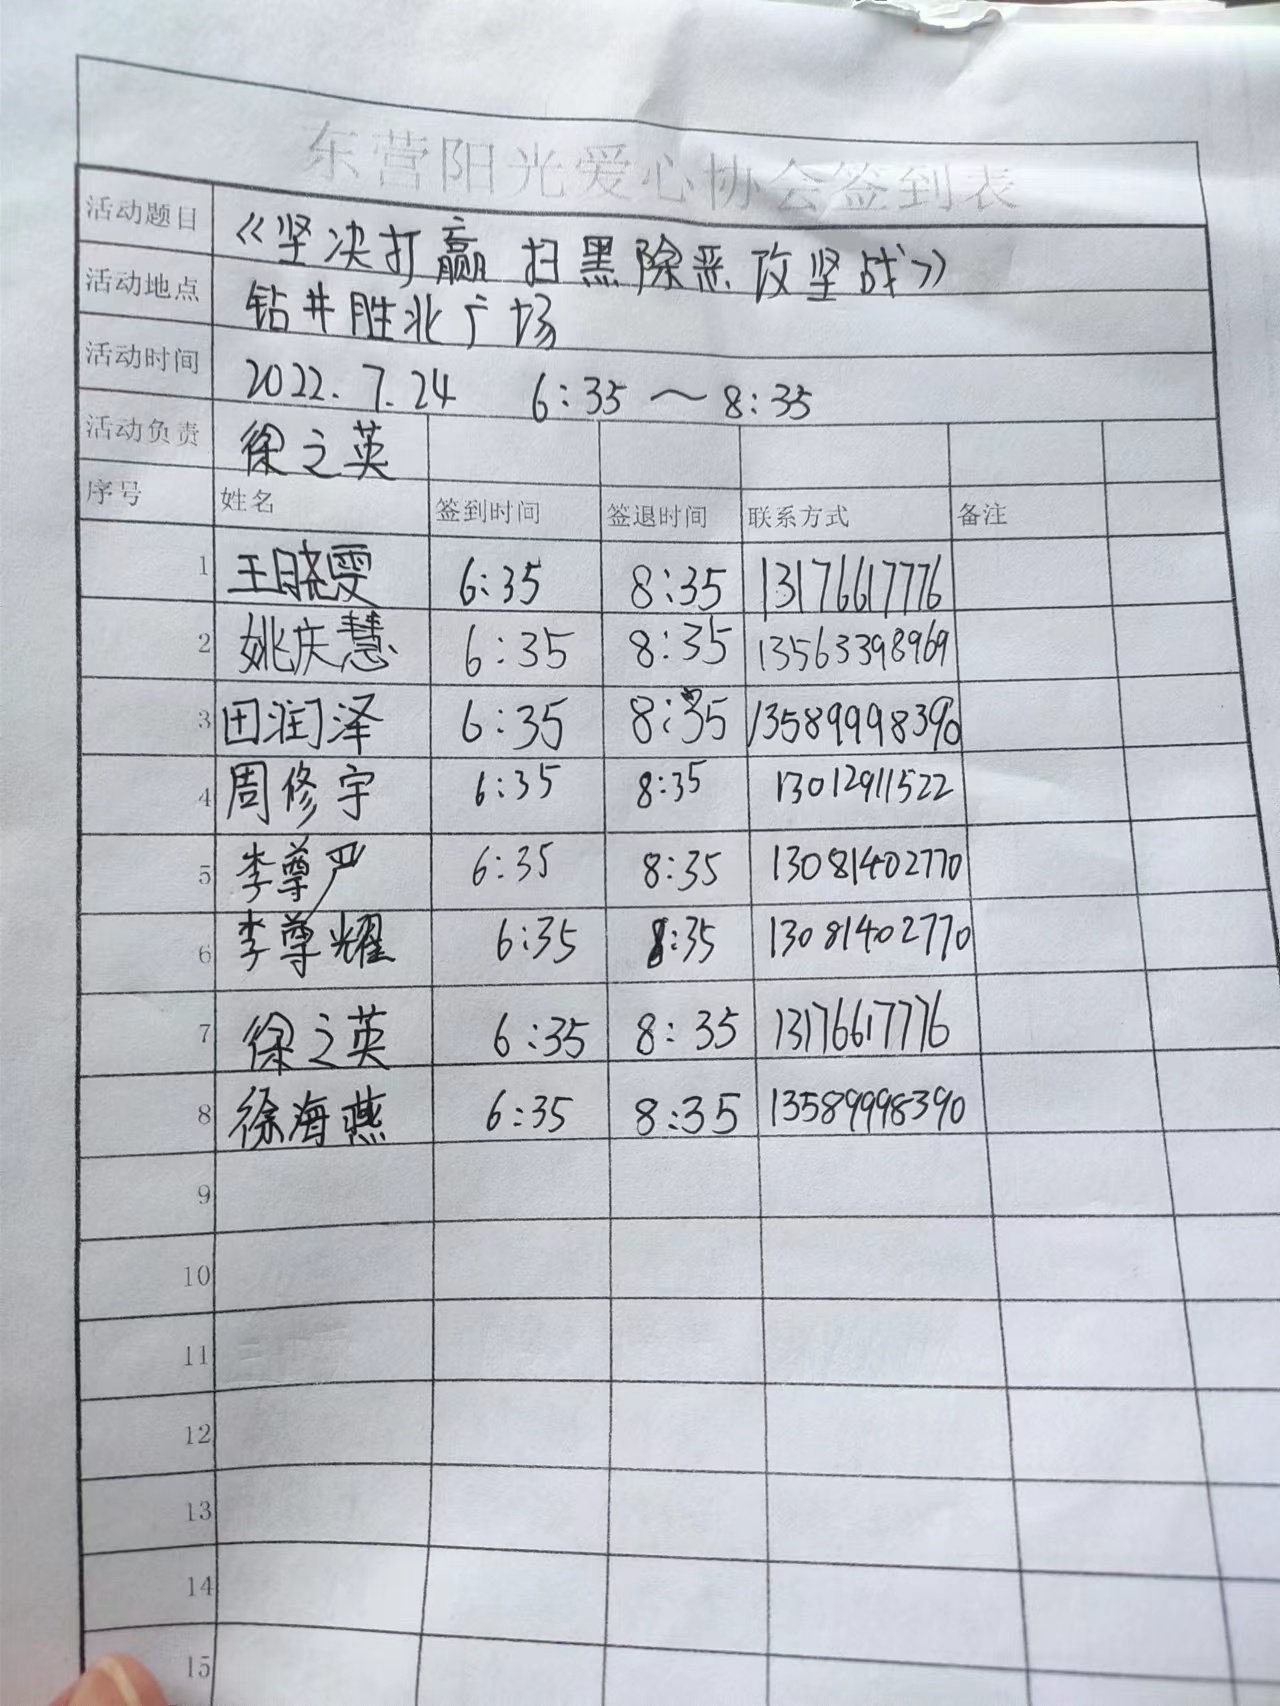 东营阳光爱心协会签到表
活动题目 《坚决打赢扫黑除恶攻坚战》
活动地点 钻井胜北广场
活动时间 2022.7.24 6:35～8:35
活动负责 徐之英
序号 姓名 签到时间 签退时间 联系方式 备注
1 王晓雯 6:35 8:35 13176617776
2 姚庆慧 6:35 8:35 13563398969
3 田润泽 6:35 8:35 13589998390
4 周修宇 6:35 8:35 13012911522
5 李尊严 6:35 8:35 13081402770
6 李尊耀 6:35 8:35 13081402770
7 徐之英 6:35 8:35 13176617776
8 徐海燕 6:35 8:35 13589998390
9
10
11
12
13
14
15